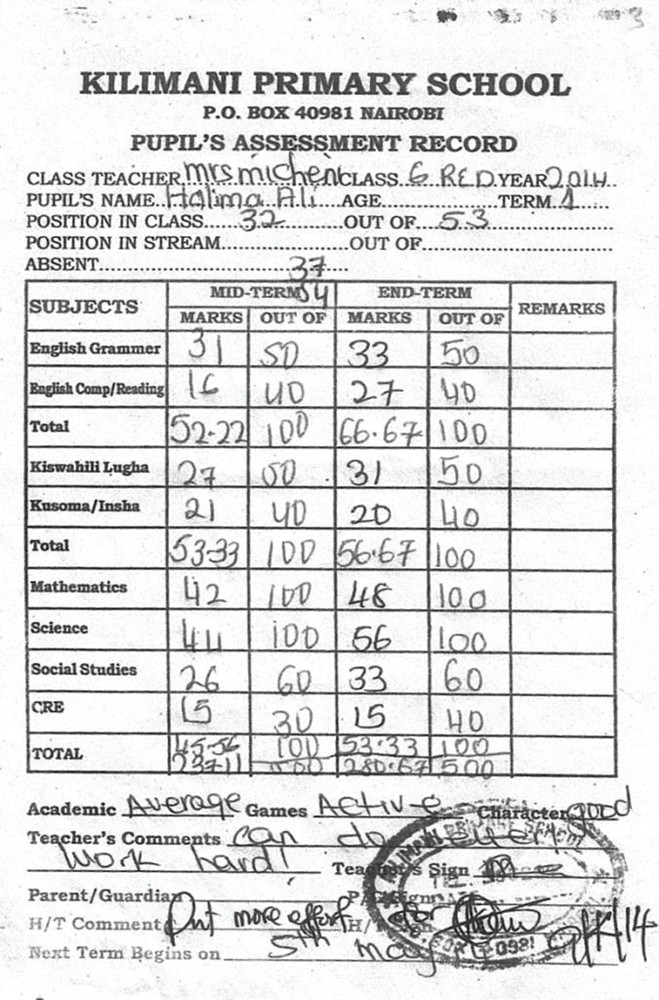 KILIMANI PRIMARY SCHOOL
P.O. BOX 40981 NAIROBI
PUPIL'S ASSESSMENT RECORD
CLASS TEACHER Mrs micheni CLASS. 6 RED. YEAR 2014
PUPIL'S NAME.. Halima Ali ...AGE..............TERM. 1
POSITION IN CLASS..... 32 ..........OUT OF... 53
POSITION IN STREAM....................OUT OF
ABSENT
37
54
SUBJECTS MID-TERM END-TERM REMARKS
MARKS OUT OF MARKS OUT OF
English Grammer 31 50 33 50
English Comp/Reading 16 40 27 40
Total 52.22 100 66.67 100
Kiswahili Lugha 27 50 31 50
Kusoma/Insha 21 40 20 40
Total 53.33 100 56.67 100
Mathematics 42 100 48 100
Science 44 100 56 100
Social Studies 26 60 33 60
CRE 15 30 15 40
TOTAL 45.56 100 53.33 100
237.11 500 280.67 500
Academic Average Games Active Character good
Teacher's Comments can do
work hard! Teacher's Sign
Parent/Guardian
H/T Comment Put more effort for
Next Term Begins on 5th may